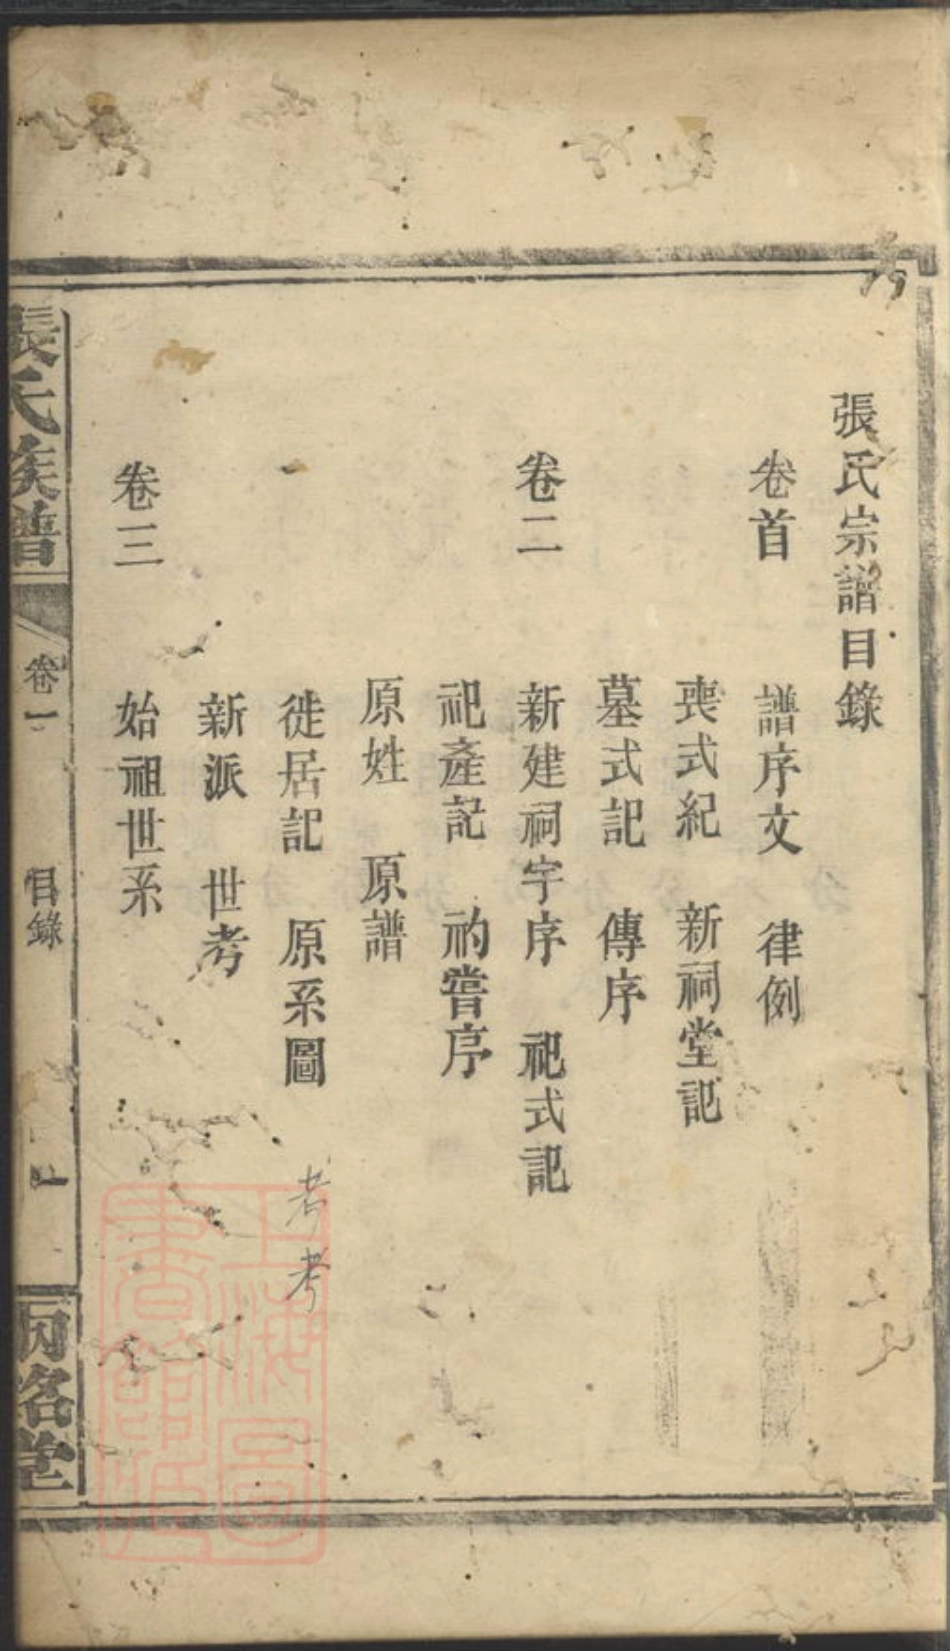 張氏宗譜目錄
卷首 譜序文 律例
喪式紀 新祠堂記
墓式記 傳序
卷二 新建祠宇序 祀式記
祀產記 礿嘗序
原姓 原譜
徙居記 原系圖
考考
新派 世考
卷三 始祖世系
張氏族譜 卷一 目錄 堂
上海圖書館藏